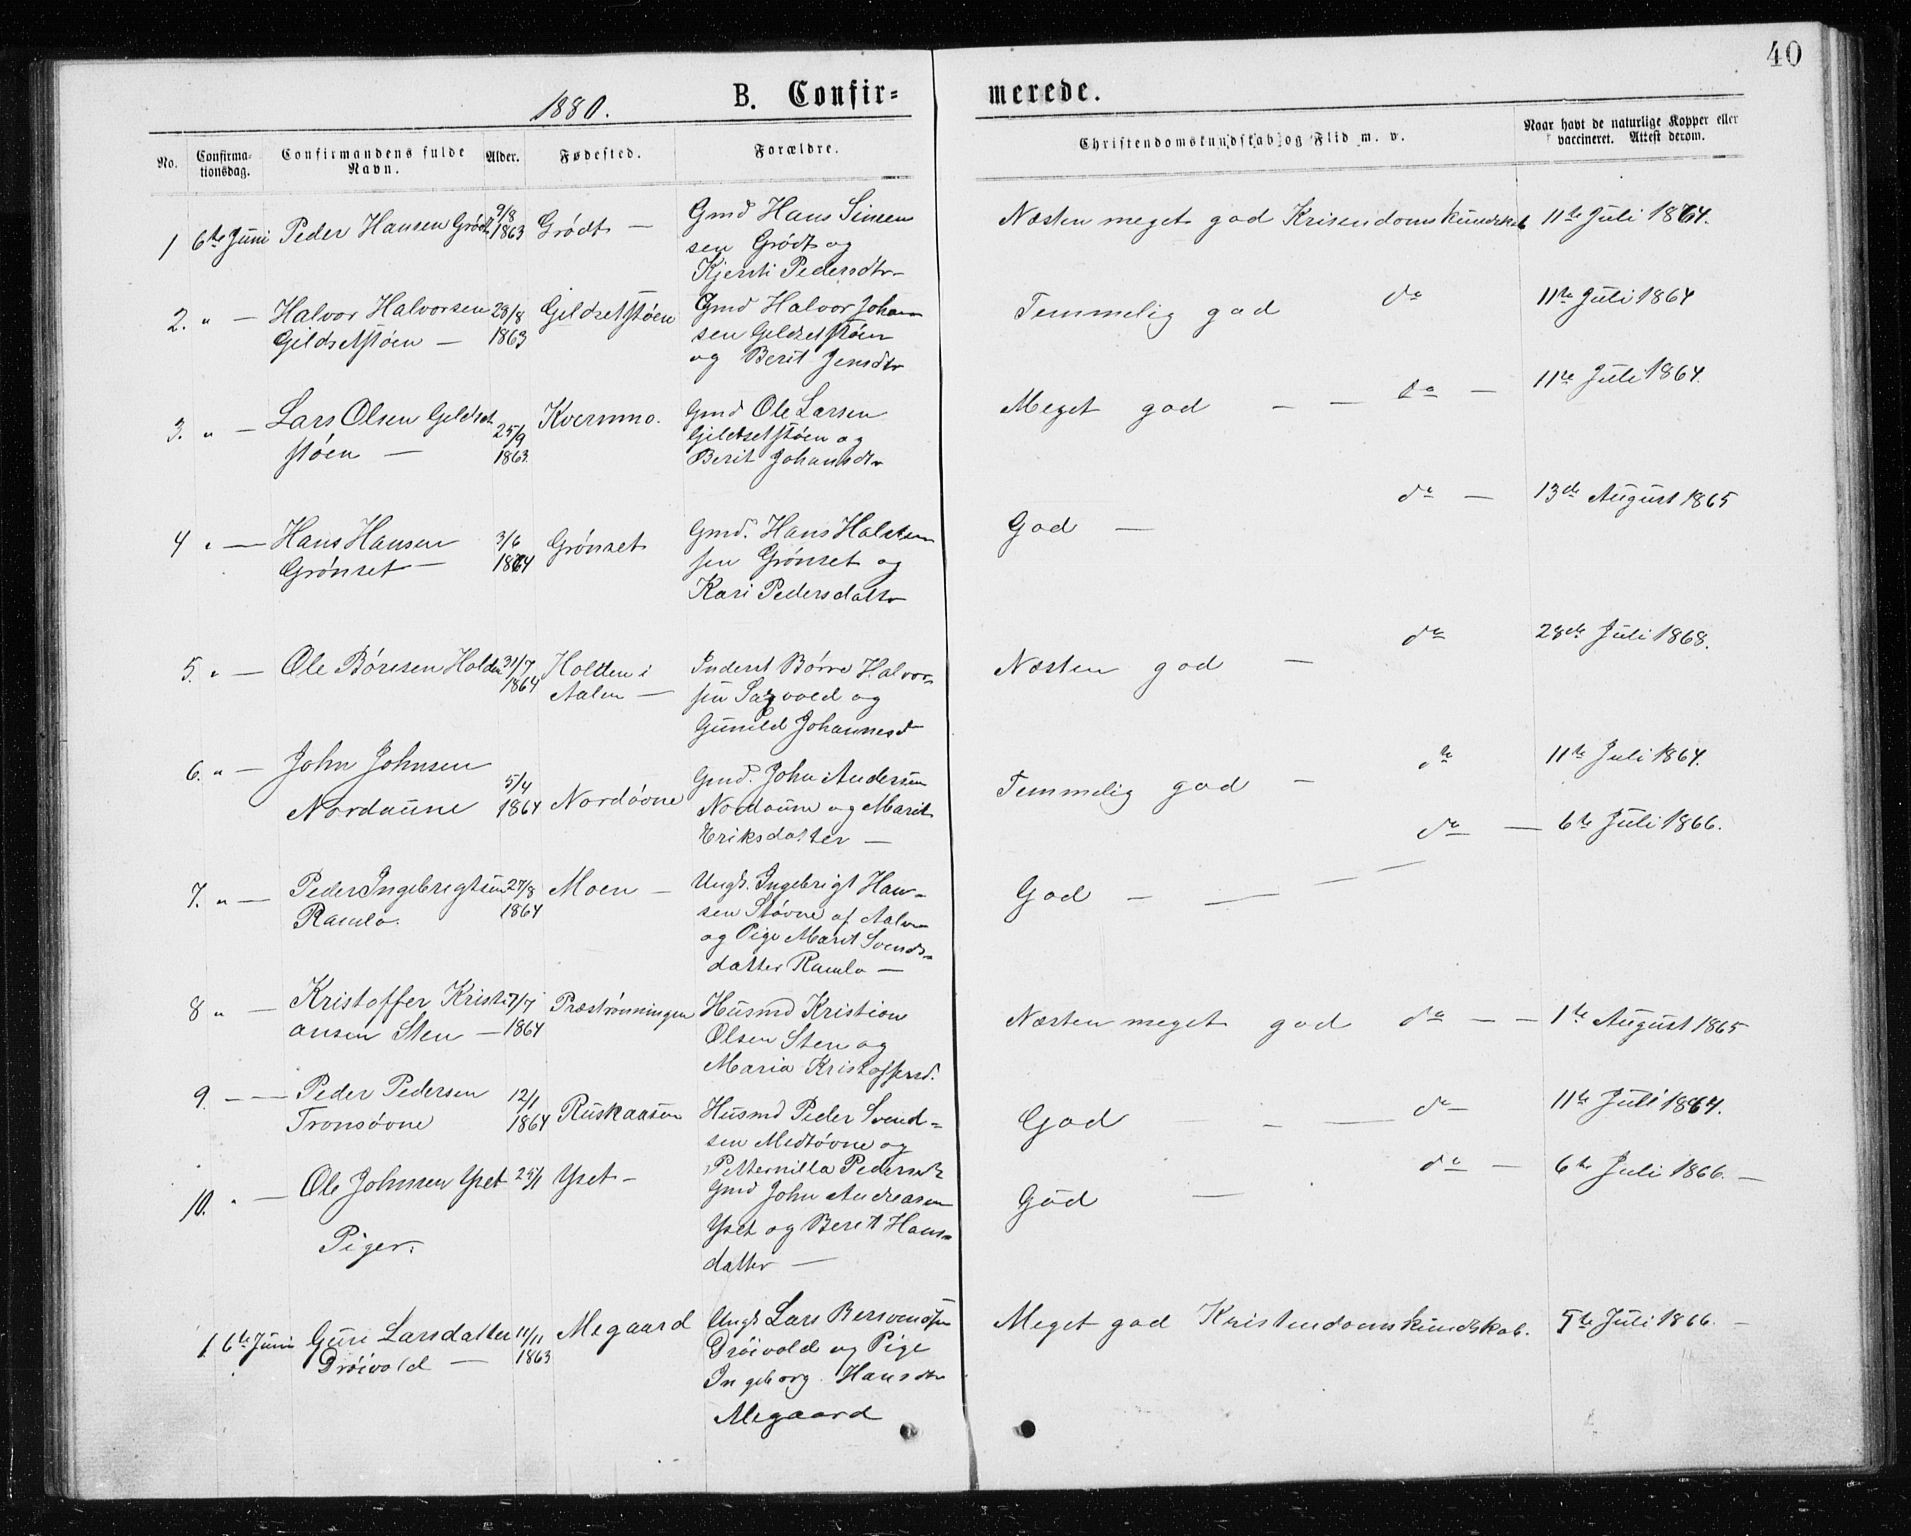 40
1880. B. Confir= merede.
No. Confirma-tionsdag. Confirmandens fulde Navn. Alder. Fødested. Forældre. Christendomskundskab og Flid m. v. Naar havt de naturlige Kopper eller vaccineret. Attest derom.
1 6te Juni Peder Hansen Grødt 9/8 Grødt — Gmd Hans Simen Næsten meget god Krisendomskundskab 11te Juli 1864.
1863 sen Grødt og
Kjersti Pedersdtr
2. " — Halvor Halvorsen 23/8 Gildsetstøen Gmd Halvor Johan Temmelig god do 11te Juli 1864
Gildsetstøen — 1863 sen Gildsetstøen
og Berit Jensdtr
3. " — Lars Olsen Gildset 25/9 Kvernmo. Gmd Ole Larsen Meget god — — do — 11te Juli 1864.
støen — 1863 Gildsetstøen og
Berit Johansdtr
4 " — Hans Hansen 3/6 Grønset Gmd. Hans Halsten God — do — 13de August 1865
Grønset — 1864 sen Grønset og
Kari Pedersdatr
5. " — Ole Børesen Holden 31/7 Holden i Inderst Børre Halvor= Næsten god — do 28de Juli 1868.
1864 Aalen — sen Sagvold og
Gunild Johannesd
6. " — John Johnsen 5/4 Nordøvne Gmd. John Andersen Temmelig god — do 11te Juli 1864.
Nordaune 1864 Nordaune og Marit
Eriksdatter —
7. " — Peder Ingebrigtsen 27/8 Moen — Ungk. Ingebrigt Han= God — — — — do — 6te Juli 1866.
Ramlo. 1864 sen Støvne af Aalen
og Pige Marit Svends=
datter Ramlo —
8 " — Kristoffer Kristi 7/7 Præstrønningen Husmd Kristian Næsten meget god do — — 1te August 1865
ansen Sten — 1864 Olsen Sten og
Maria Kristoffersd.
9. — — Peder Pedersen 12/1 Ruskaasen Husmd Peder Svend= God — — — do — 11te Juli 1864.
Tronsøvne 1864 sen Medtøvne og
Petternilla Pedersdtr
10. " — Ole Johnsen Yset 25/1 Yset — Gmd John Andreasen God — do — 6te Juli 1866. —
Yset og Berit Hans=
datter —
Piger.
1. 6te Juni Guri Larsdatter 11/11 Megaard Ungk Lars Bersvendsen Meget god Kristendomskundskab. 5te Juli 1866. —
Drøivold — 1863 Drøivold og Pige
Ingeborg Hansdtr
Megaard